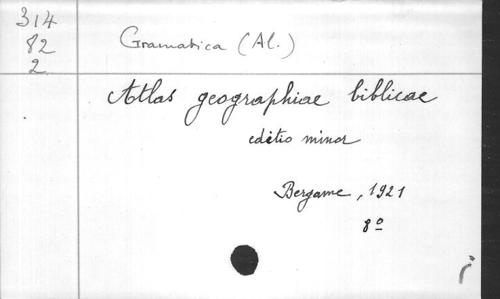 314
82
2
Gramatica (Al.)
Atlas geographiae biblicae
editio minor
Bergame, 1921
8º